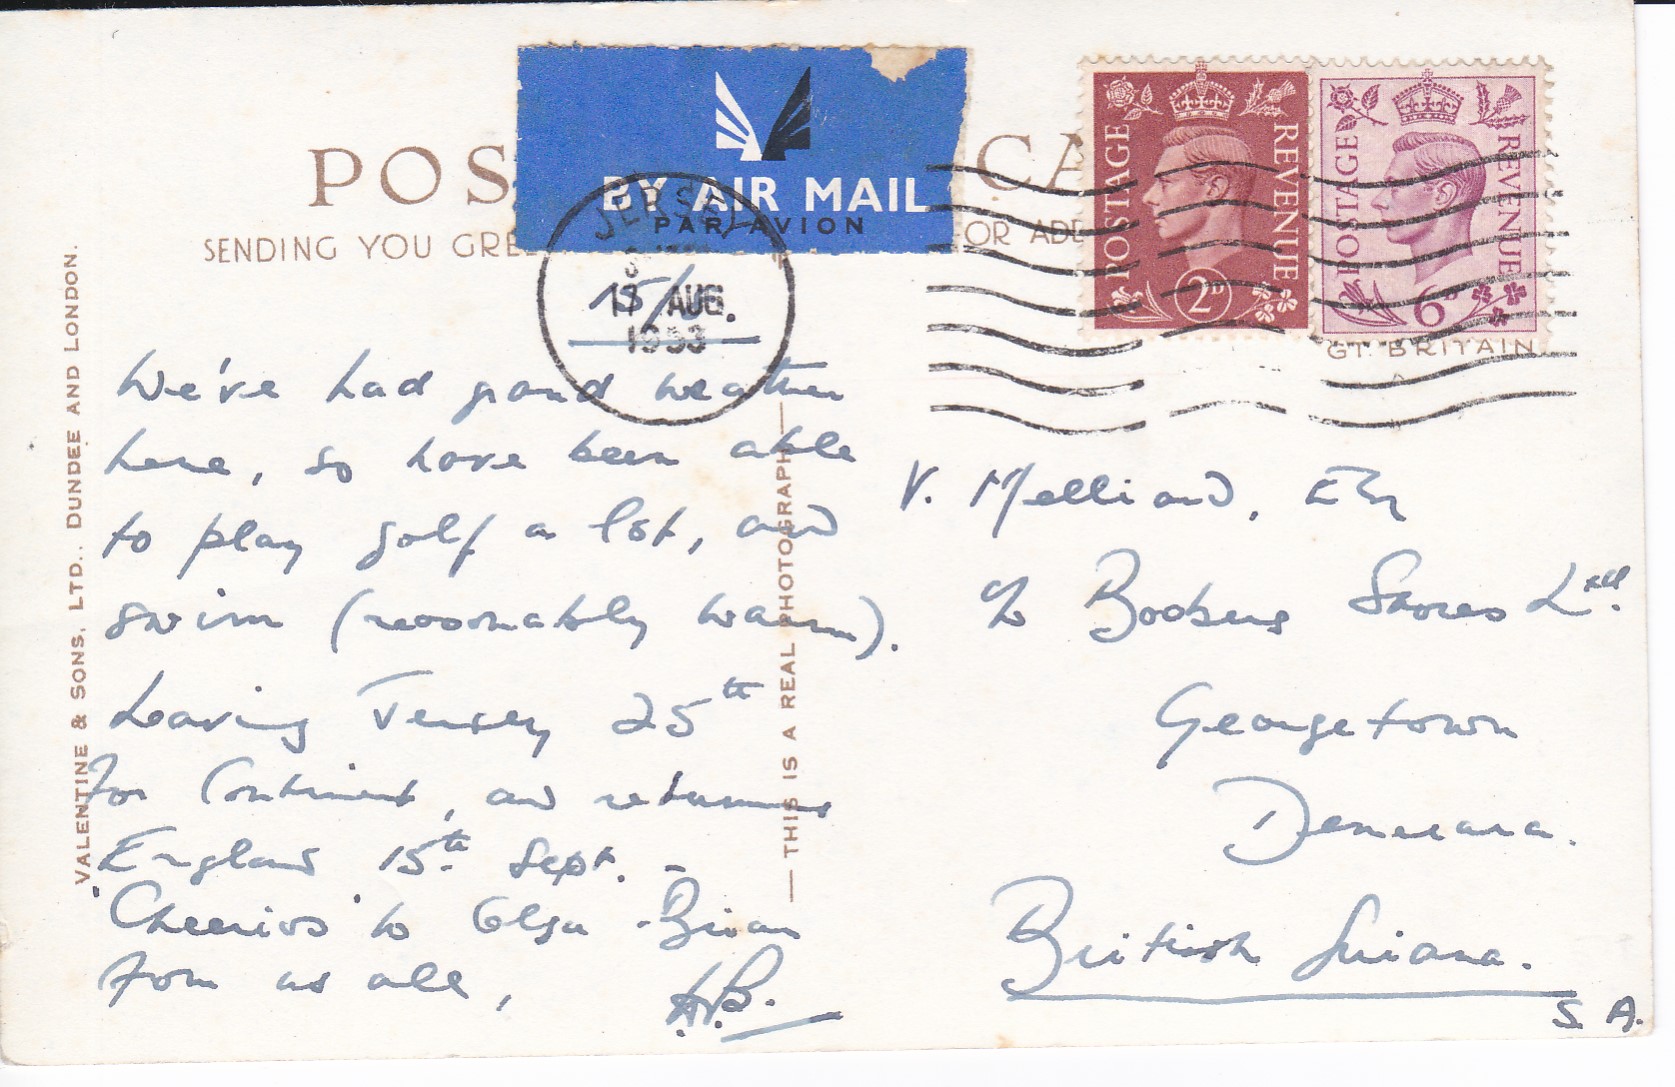 POS
CA
BY AIR MAIL
PAR AVION
SENDING YOU GRE
OR ADD
POSTAGE REVENUE
2D
POSTAGE REVENUE
6D
GT. BRITAIN
JERSEY
17 AUG.
1953
VALENTINE & SONS, LTD., DUNDEE AND LONDON.
— THIS IS A REAL PHOTOGRAPH —
We've had grand weather
here, so have been able
to play golf a lot, and
swim (reasonably warm).
Leaving Jersey 25th
for Continent, and returning
England 15th Sept. -
'Cheerios' to Olga - Brian
from us all,
H.B.
V. Melliard, Esq
c/o Bookers Stores Ltd.
Georgetown
Demerara.
British Guiana.
S. A.